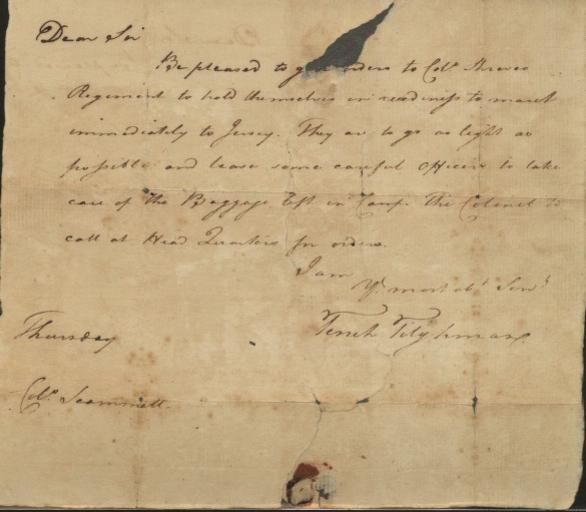 Dear Sir
Be pleased to give orders to Colo. Shreves
Regiment to hold themselves in readiness to march
immediately to Jersey. They are to go as light as
possible and leave some careful Officers to take
care of the Baggage left in Camp. The Colonel to
call at Head Quarters for orders.
I am
Yr. most obt. Servt.
Tench Tilghman
Thursday
Colo. Scammell.